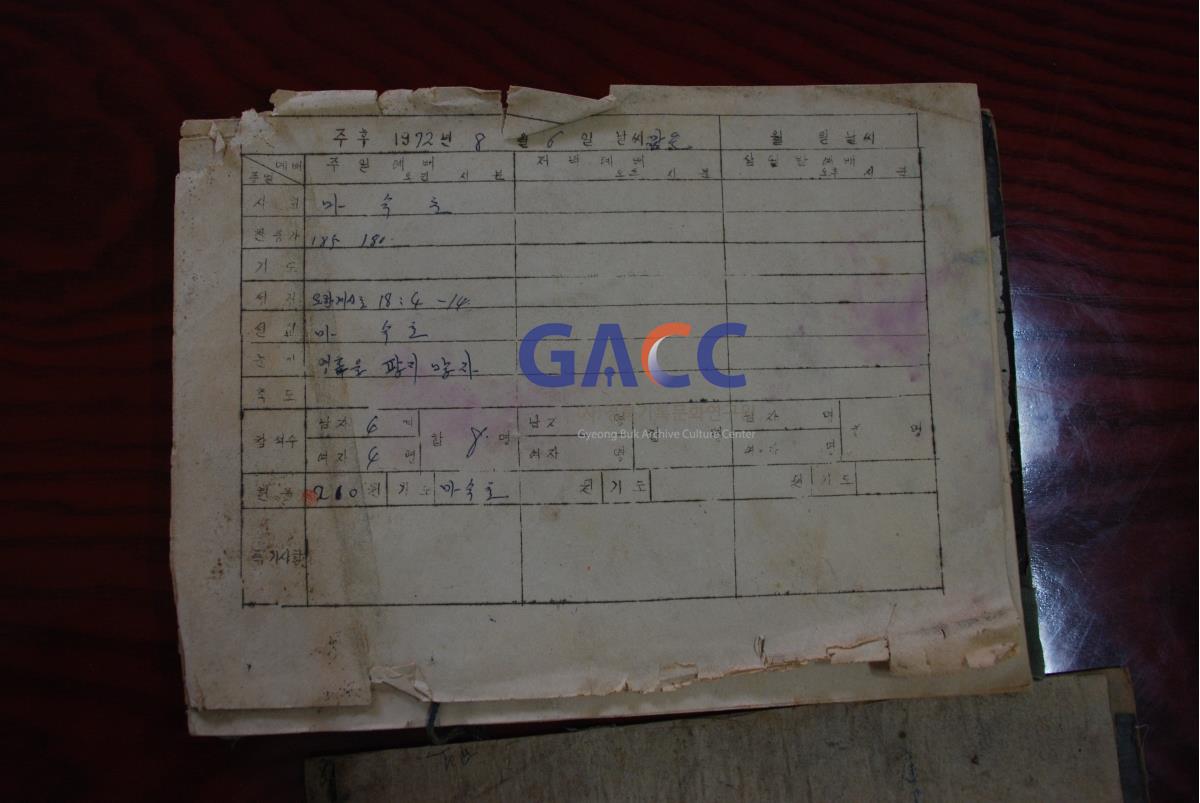 주후 1972년 8월 6일 날씨 맑음 월 일 날씨
예배 주일예배 저녁예배 삼일밤예배
종별 오전 시 분 오후 시 분 오후 시 분
사회 마 속 호
찬송가 185 180
기도
서적 요한계시록 18:4-14
설교 마 속 호
GACC
논제 영혼을 팔지 말자
축도
참석수 남자 4명 합 8명 남자 명 남자 명
Gyeong Buk Archive Culture Center
여자 4명 여자 명 명
헌금 210원 기도 마속호 원 기도 원 기도
특기사항